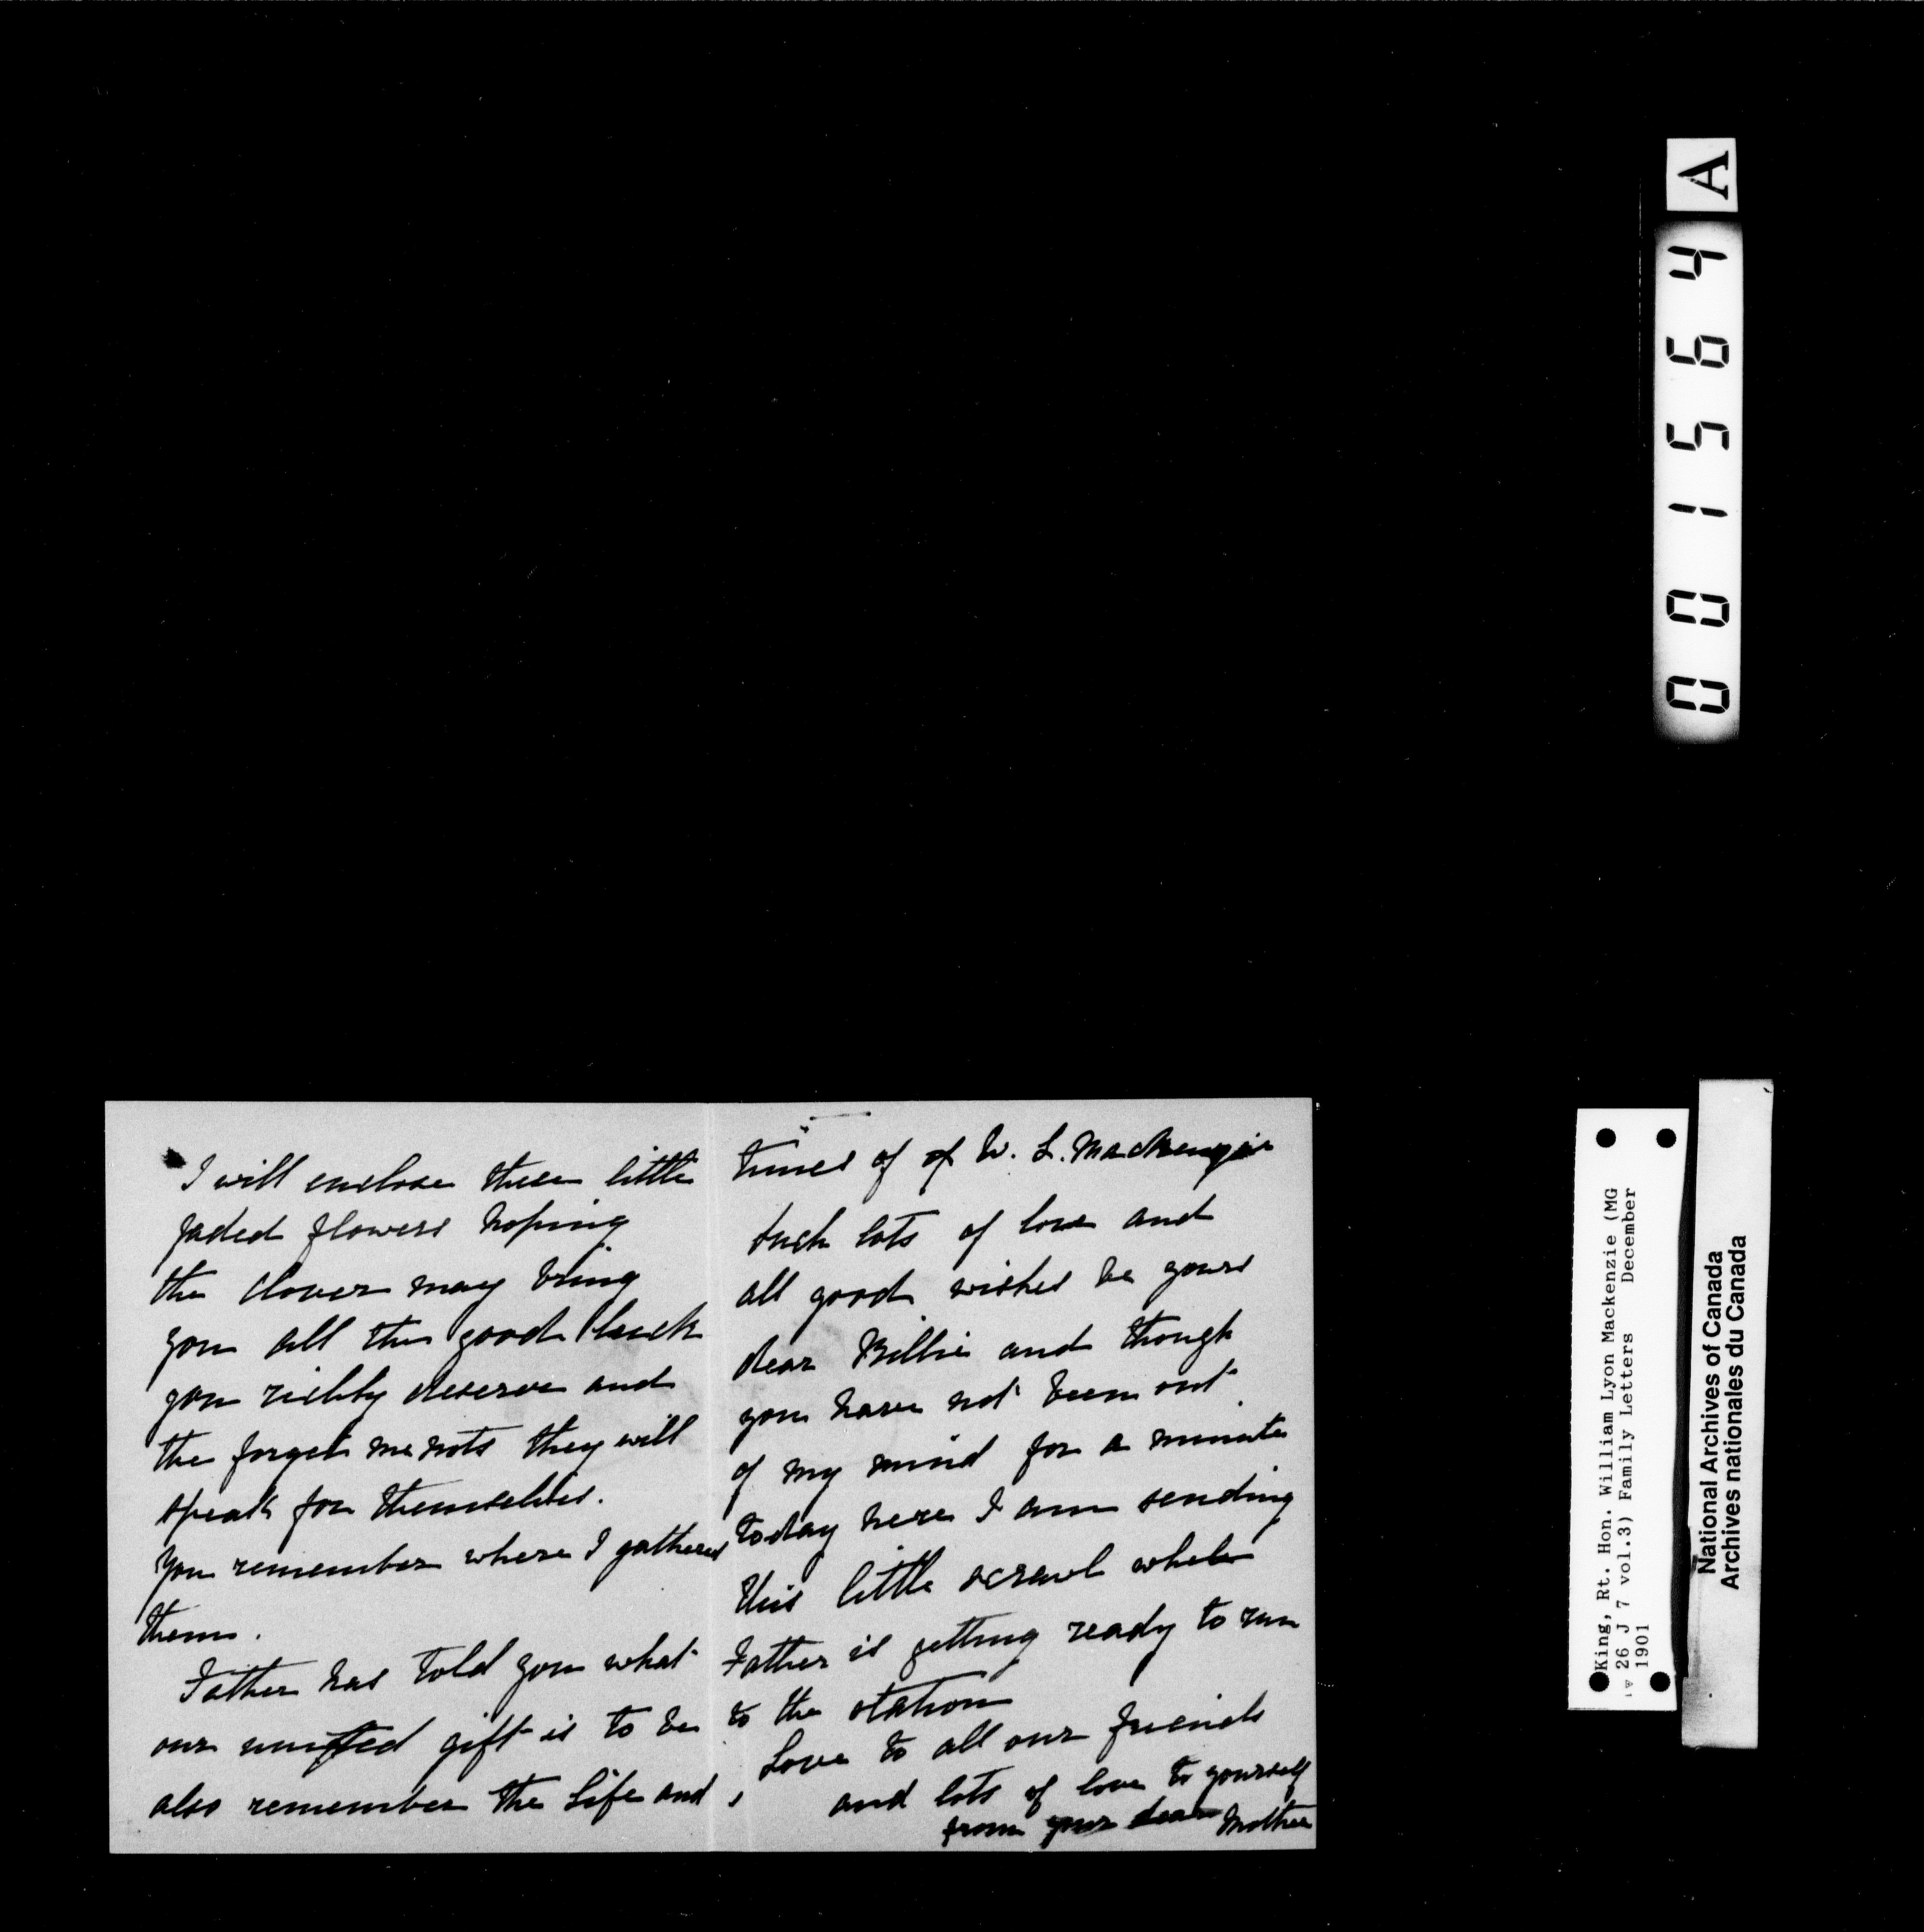 I will enclose these little
faded flowers hoping
the clover may bring
you all the good luck
you richly deserve and
the forget me nots they will
speak for themselves.
You remember where I gathered
them.
Father has told you what
our united gift is to be
also remember the Life and
times of of W. L. Mackenzie
Such lots of love and
all good wishes be yours
dear Billie and though
you have not been out
of my mind for a minute
today here I am sending
this little scrawl while
Father is getting ready to run
to the station
Love to all our friends
and lots of love to yourself
from your dear Mother
A
001564
King, Rt. Hon. William Lyon Mackenzie (MG
26 J 7 vol.3) Family Letters December
1901
National Archives of Canada
Archives nationales du Canada